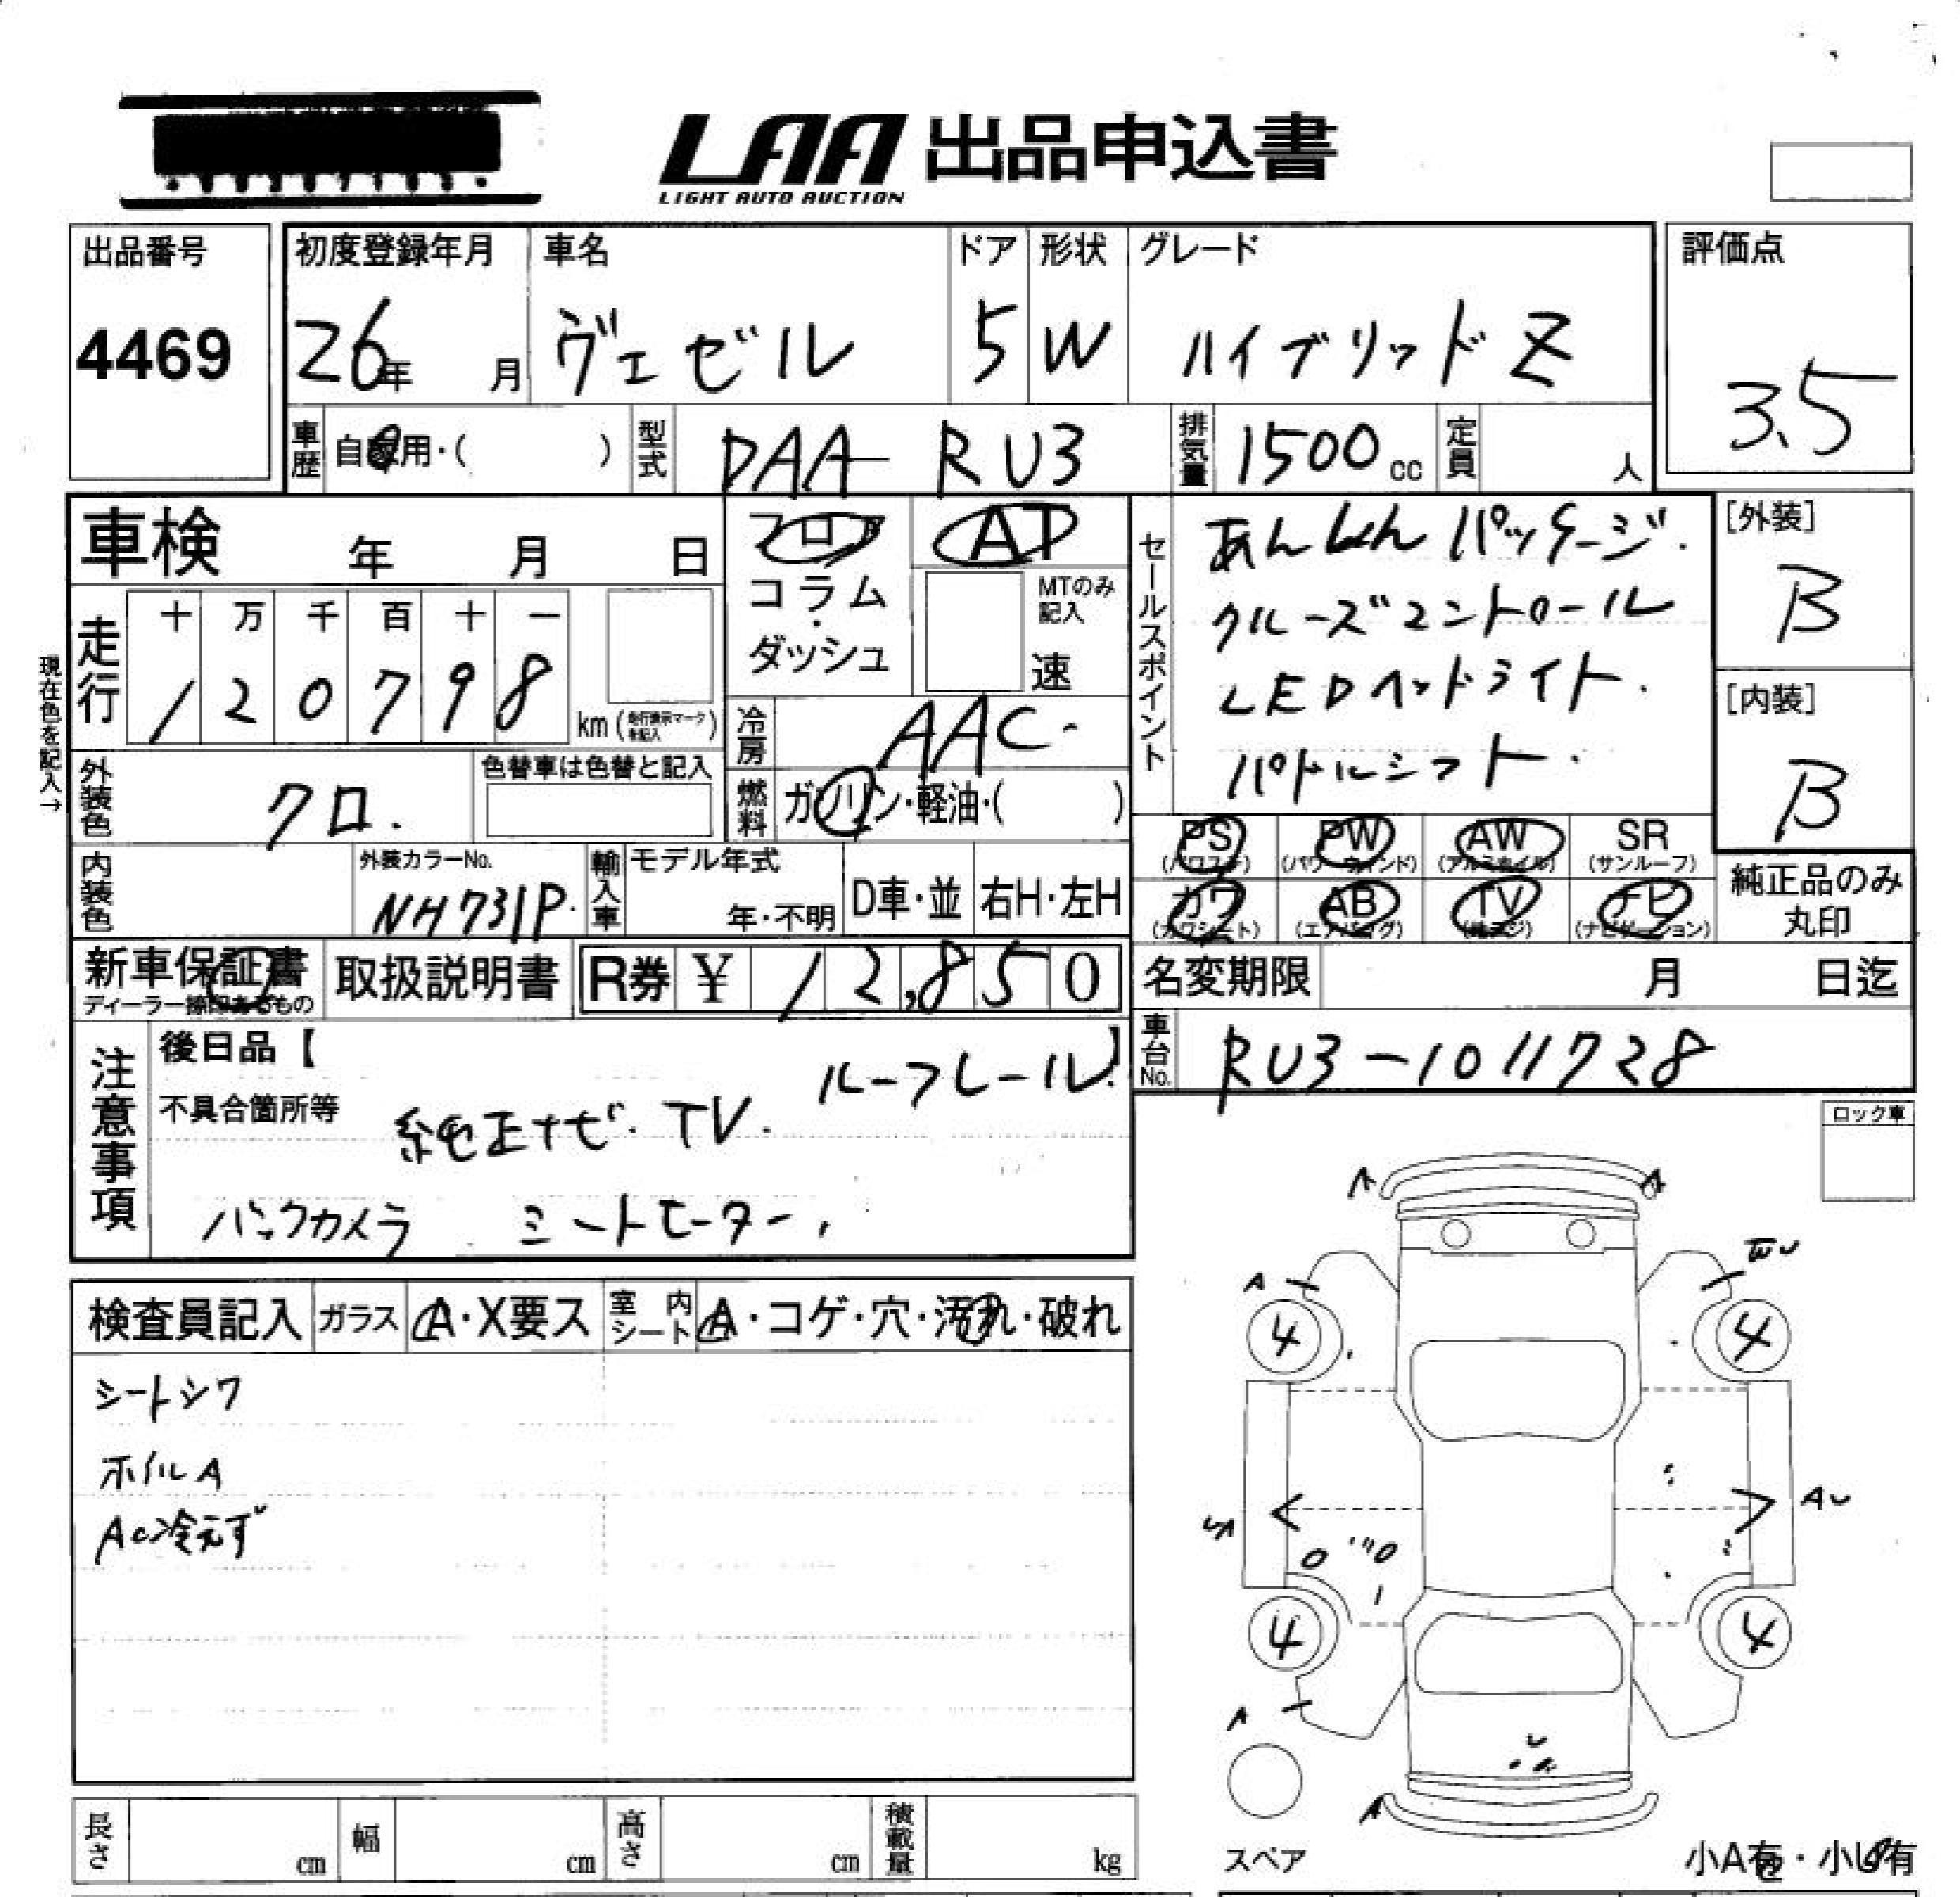 LAA 出品申込書
LIGHT AUTO AUCTION
出品番号
4469
初度登録年月
26年 月
車名
ヴェゼル
ドア
5
形状
W
グレード
ハイブリッド Z
評価点
3.5
車歴
自家用・( )
型式
DAA RU3
排気量
1500cc
定員
人
車検 年 月 日
フロア
コラム
・
ダッシュ
AT
MTのみ
記入
速
セールスポイント
あんしんパッケージ.
クルーズコントロール
LEDヘッドライト.
パドルシフト.
[外装]
B
[内装]
B
現在色を記入→
走行
十 万 千 百 十 一
1 2 0 7 9 8
km (走行表示マークを記入)
冷房
AAC
燃料
ガソリン・軽油・( )
外装色
クロ.
色替車は色替と記入
内装色
外装カラーNo.
NH731P
輸入車
モデル年式
年・不明
D車・並
右H・左H
PS
(パワステ)
PW
(パワーウィンド)
AW
(アルミホイル)
SR
(サンルーフ)
カワ
(カワシート)
AB
(エアバッグ)
TV
(地デジ)
ナビ
(ナビゲーション)
純正品のみ
丸印
新車保証書
取扱説明書
R券 ¥ 12,850
名変期限 月 日迄
車台No.
RU3-1011728
注意事項
後日品【 】
不具合箇所等
ルーフレール.
純正ナビ. TV.
バックカメラ シートヒーター,
ロック車
検査員記入
ガラス
A・X要ス
室内シート
A・コゲ・穴・汚れ・破れ
シートシワ
ホイルA
AC冷えず
A A
A
4 4
AU
4 4
A
A
スペア
小A有・小U有
長さ cm
幅 cm
高さ cm
積載量 kg